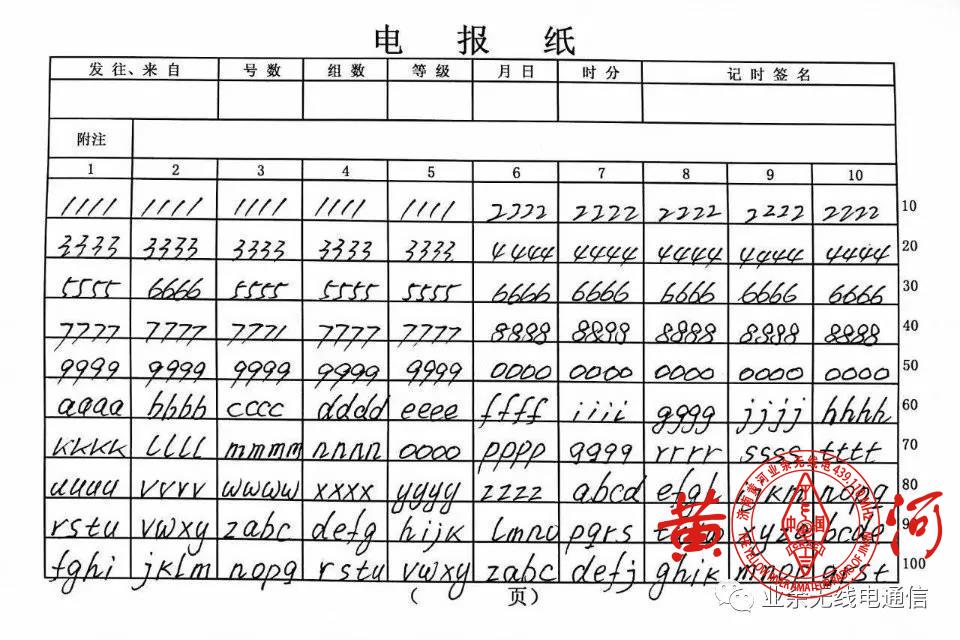 电 报 纸
发往、来自 号数 组数 等级 月日 时分 记时签名
附注
1 2 3 4 5 6 7 8 9 10
1111 1111 1111 1111 1111 2222 2222 2222 2222 2222 10
3333 3333 3333 3333 3333 4444 4444 4444 4444 4444 20
5555 6666 5555 5555 5555 6666 6666 6666 6666 6666 30
7777 7777 7771 7777 7777 8888 8898 8888 8888 8888 40
9999 9999 9999 9999 9999 0000 0000 0000 0000 0000 50
aaaa bbbb cccc dddd eeee ffff iiii gggg jjjj hhhh 60
kkkk llll mmmm nnnn oooo pppp qqqq rrrr ssss tttt 70
uuuu vvvv wwww xxxx yyyy zzzz abcd efgh nopq 80
rstu vwxy zabc defg hijk lmno pqrs xyza bcde 90
fghi jklm nopq rstu vwxy zabc defj ghik 100
黄 河
中 国
( 页)
业余无线电通信